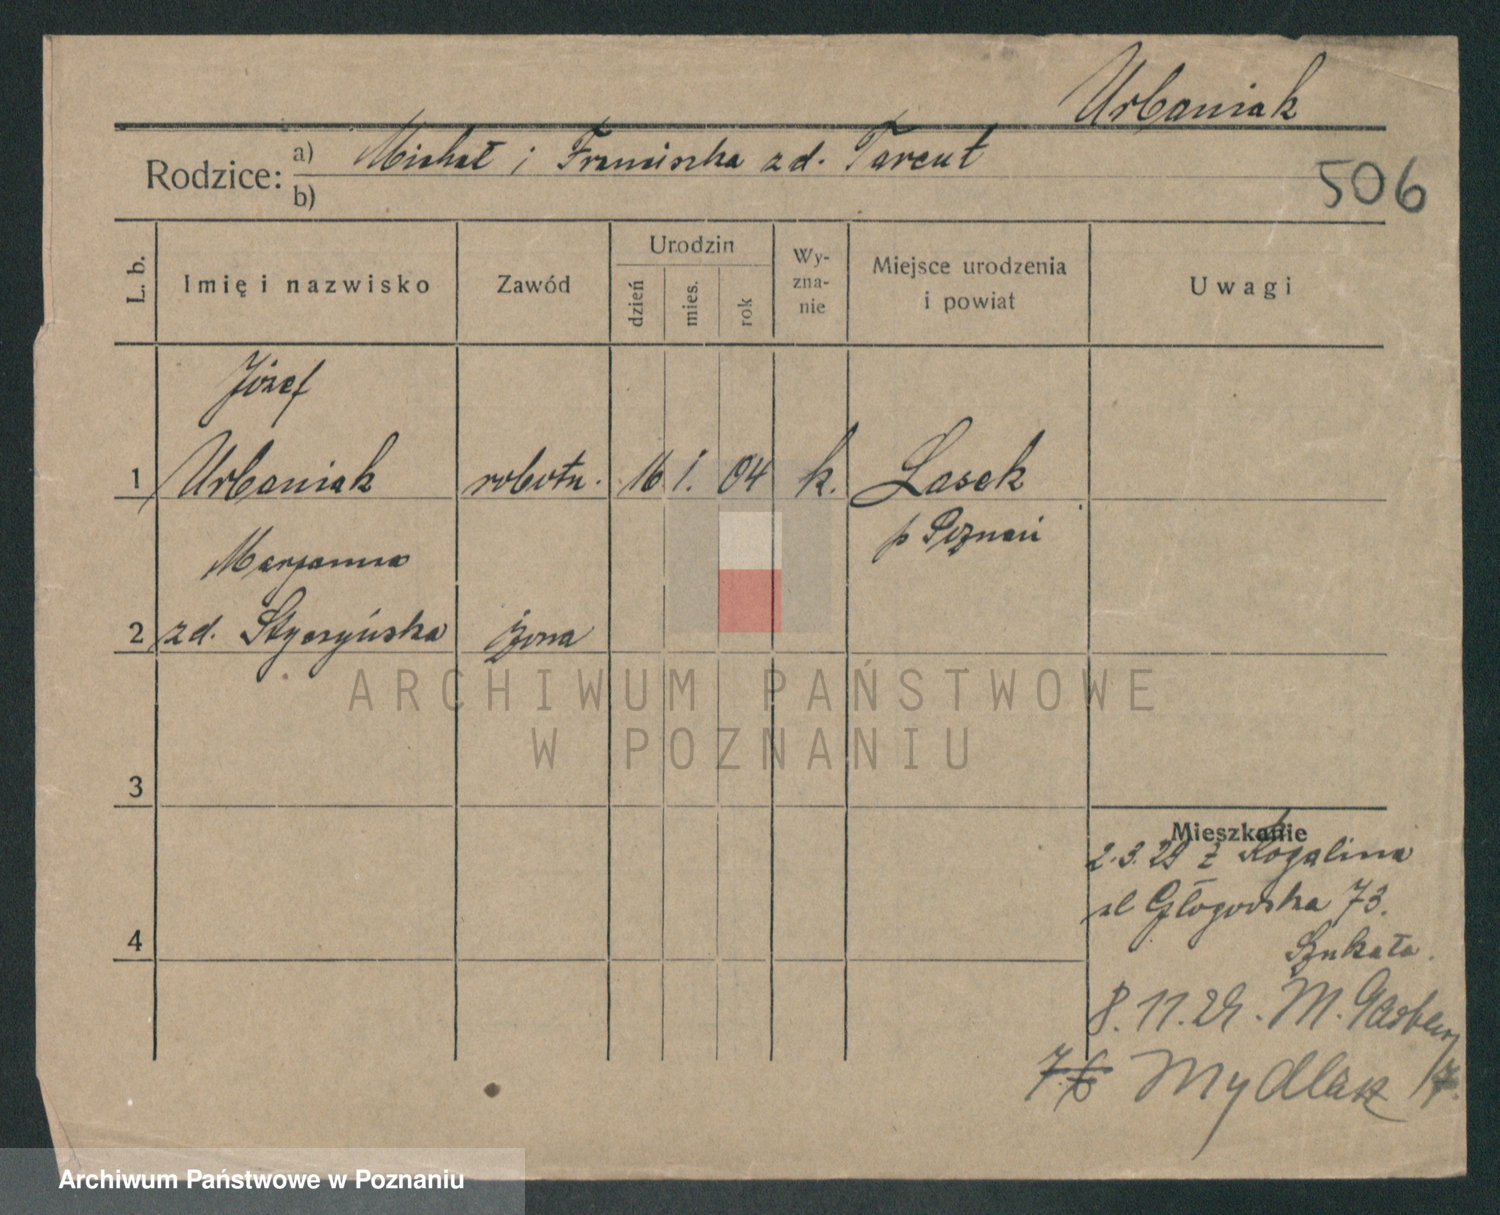 Urbaniak
Rodzice: a) Michał i Franciszka zd. Tarcut
b)
506
L. b.
Imię i nazwisko
Zawód
Urodzin
dzień
mies.
rok
Wy-
zna-
nie
Miejsce urodzenia
i powiat
Uwagi
Józef
1 Urbaniak robotn. 16 1. 04 k. Lasek
p Poznań
Marjanna
2 zd. Styszyńska żona
3
4
Mieszkanie
2.3.29 z Rogalina
ul Głogowska 73.
Szukała.
8.11.29. M. Garbary
Mydlak
ARCHIWUM PAŃSTWOWE
W POZNANIU
Archiwum Państwowe w Poznaniu